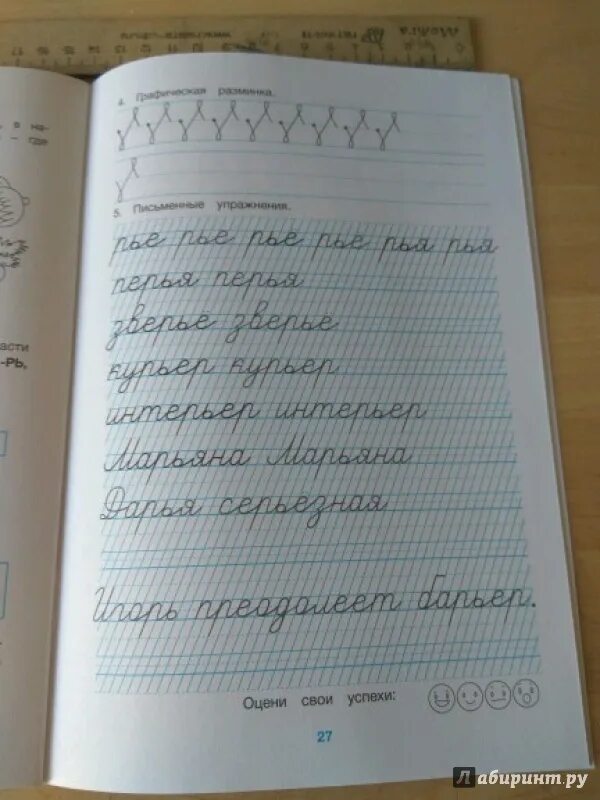 17 16 15 14 13 12 11 10 9 8 7 6 5 4 3 2 1 0
Можга
в на-
– где
4. Графическая разминка.
5. Письменные упражнения.
рье рье рье рье рья рья
перья перья
зверье зверье
курьер курьер
интерьер интерьер
Марьяна Марьяна
Дарья серьезная
асти
-РЬ,
Игорь преодолеет барьер.
Оцени свои успехи:
27
Лабиринт.ру